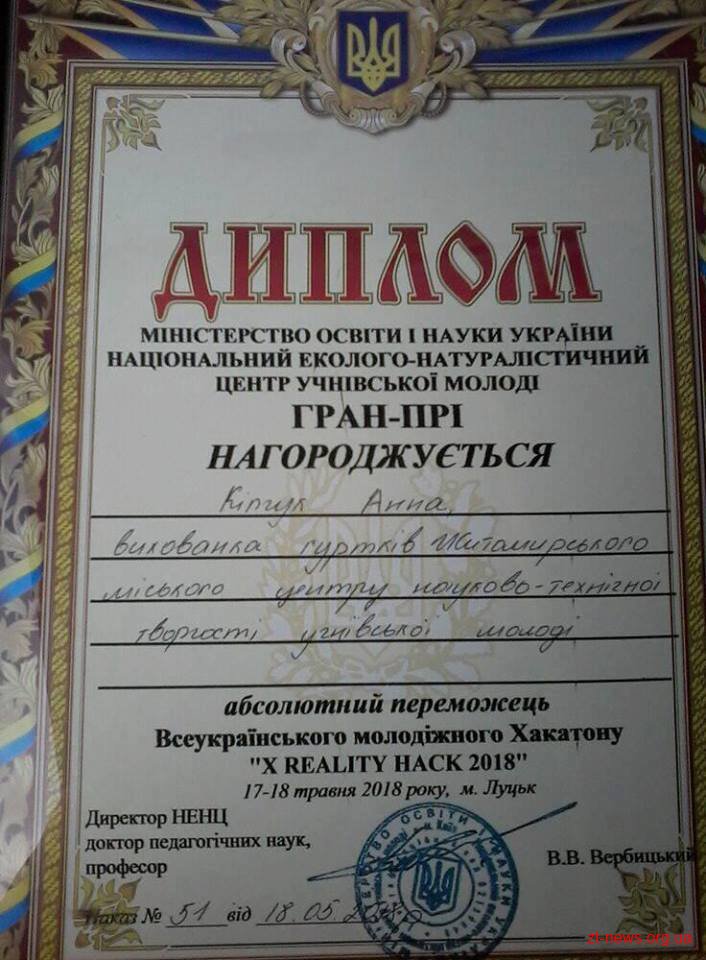 ДИПЛОМ
МІНІСТЕРСТВО ОСВІТИ І НАУКИ УКРАЇНИ
НАЦІОНАЛЬНИЙ ЕКОЛОГО-НАТУРАЛІСТИЧНИЙ
ЦЕНТР УЧНІВСЬКОЇ МОЛОДІ
ГРАН-ПРІ
НАГОРОДЖУЄТЬСЯ
Кіпчук Анна,
вихованка гуртків Житомирського
міського центру науково-технічної
творчості учнівської молоді
абсолютний переможець
Всеукраїнського молодіжного Хакатону
"X REALITY HACK 2018"
17-18 травня 2018 року, м. Луцьк
Директор НЕНЦ
доктор педагогічних наук,
професор
В.В. Вербицький
Наказ № 51 від 18.05.2018р
zt-news.org.ua